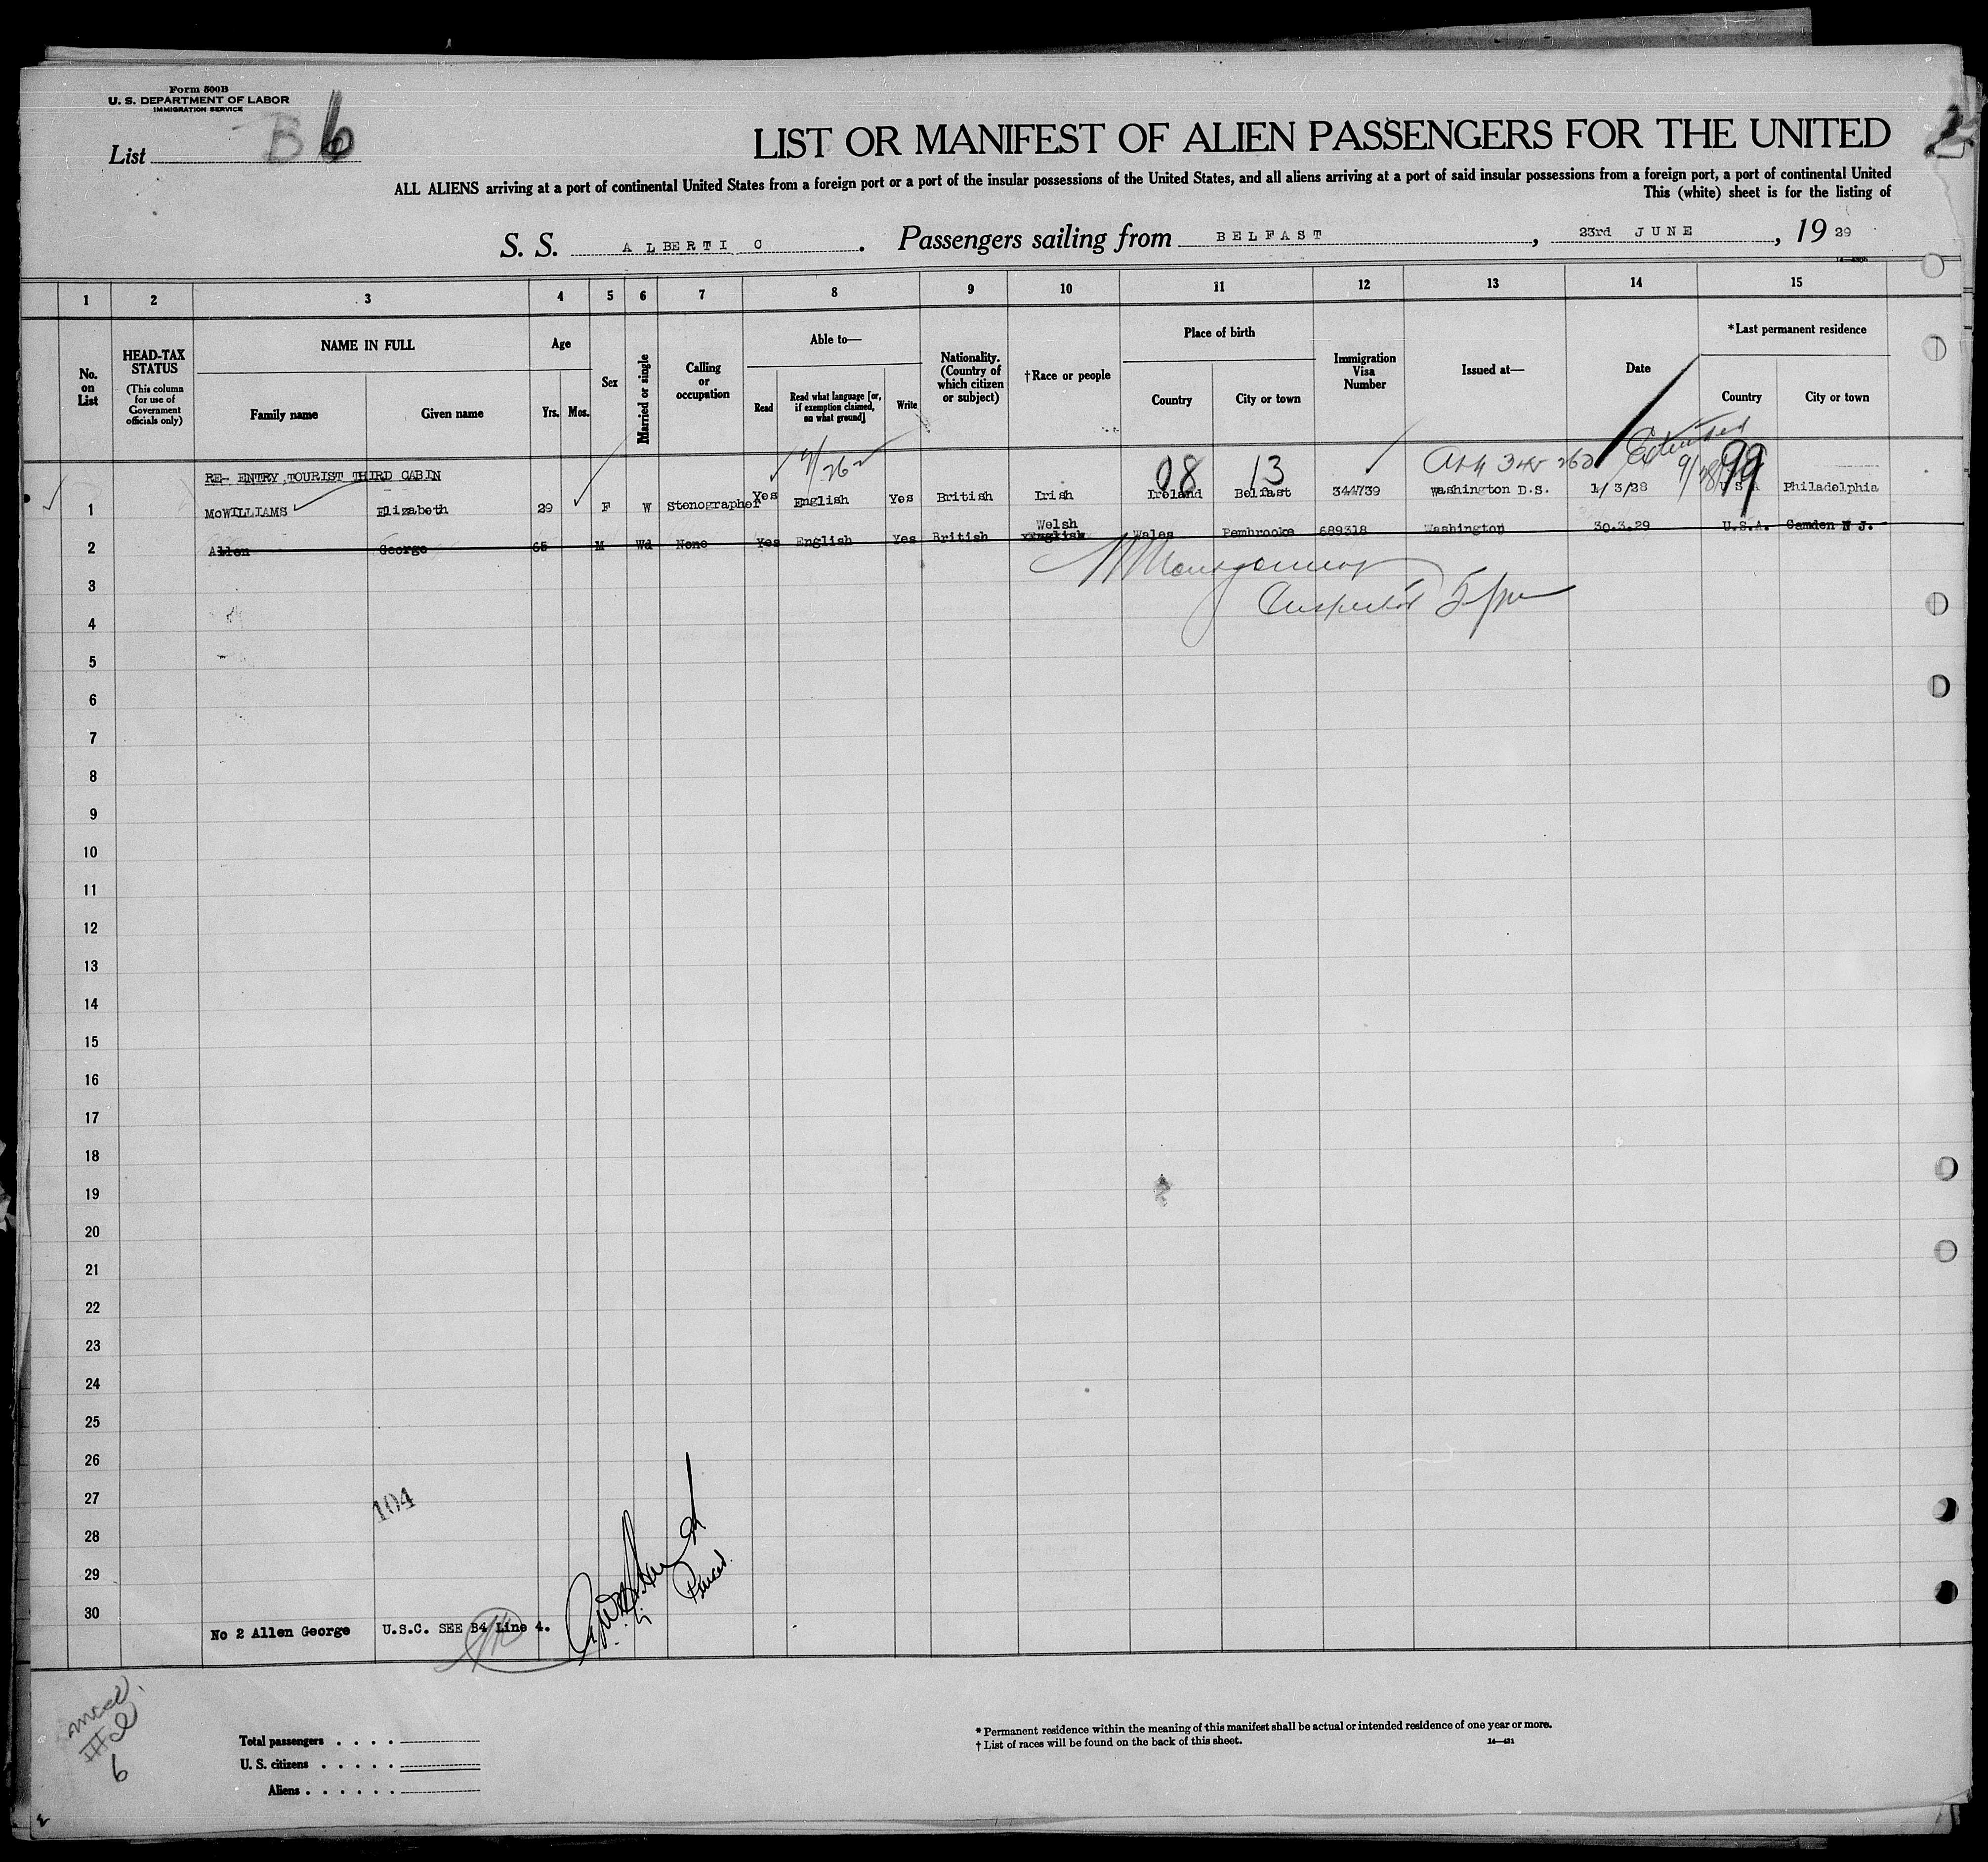 Form 500B
U. S. DEPARTMENT OF LABOR
IMMIGRATION SERVICE
List B 6
LIST OR MANIFEST OF ALIEN PASSENGERS FOR THE UNITED
ALL ALIENS arriving at a port of continental United States from a foreign port or a port of the insular possessions of the United States, and all aliens arriving at a port of said insular possessions from a foreign port, a port of continental United
This (white) sheet is for the listing of
S. S. ALBERTIC. Passengers sailing from BELFAST, 23rd JUNE, 19 29
1 2 3 4 5 6 7 8 9 10 11 12 13 14 15
No. on List
HEAD-TAX STATUS
(This column for use of Government officials only)
NAME IN FULL
Family name
Given name
Age
Yrs. Mos.
Sex
Married or single
Calling or occupation
Able to—
Read
Read what language [or, if exemption claimed, on what ground]
Write
Nationality. (Country of which citizen or subject)
†Race or people
Place of birth
Country
City or town
Immigration Visa Number
Issued at—
Date
*Last permanent residence
Country
City or town
RE- ENTRY TOURIST THIRD CABIN
08 13 99
1 McWILLIAMS Elizabeth 29 F W Stenographer Yes English Yes British Irish Ireland Belfast 344739 Washington D.S. 1/3/28 U S A Philadelphia
2 Allen George 65 M Wd None Yes English Yes British English Welsh Wales Pembrooke 689318 Washington 30.3.29 U.S.A. Camden N J.
3
4
5
6
7
8
9
10
11
12
13
14
15
16
17
18
19
20
21
22
23
24
25
26
27
104
28
29
30
No 2 Allen George U.S.C. SEE B4 Line 4.
6
Total passengers . . . .
U. S. citizens . . . . .
Aliens . . . . . .
* Permanent residence within the meaning of this manifest shall be actual or intended residence of one year or more.
† List of races will be found on the back of this sheet.